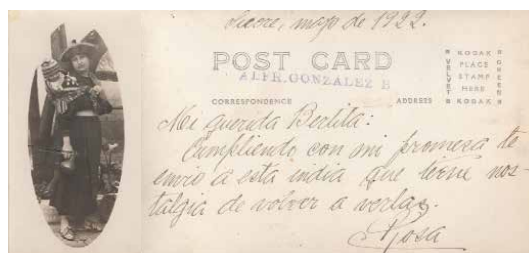 Sucre, mayo de 1922.
POST CARD
ALFR. GONZALEZ B
CORRESPONDENCE
ADDRESS
VELVET
GREEN
KODAK
PLACE
STAMP
HERE
KODAK
Mi querida Bertita:
Cumpliendo con mi promesa te
envio a esta india que tiene nos-
talgia de volver a verlas.
Rosa